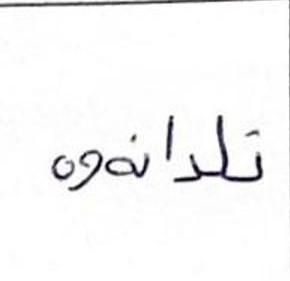 تلدانەوە